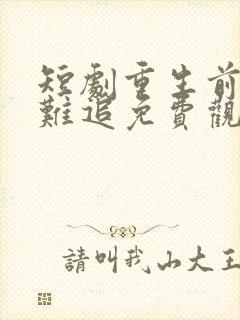 短劇重生前
難追免費觀
請叫我山大王